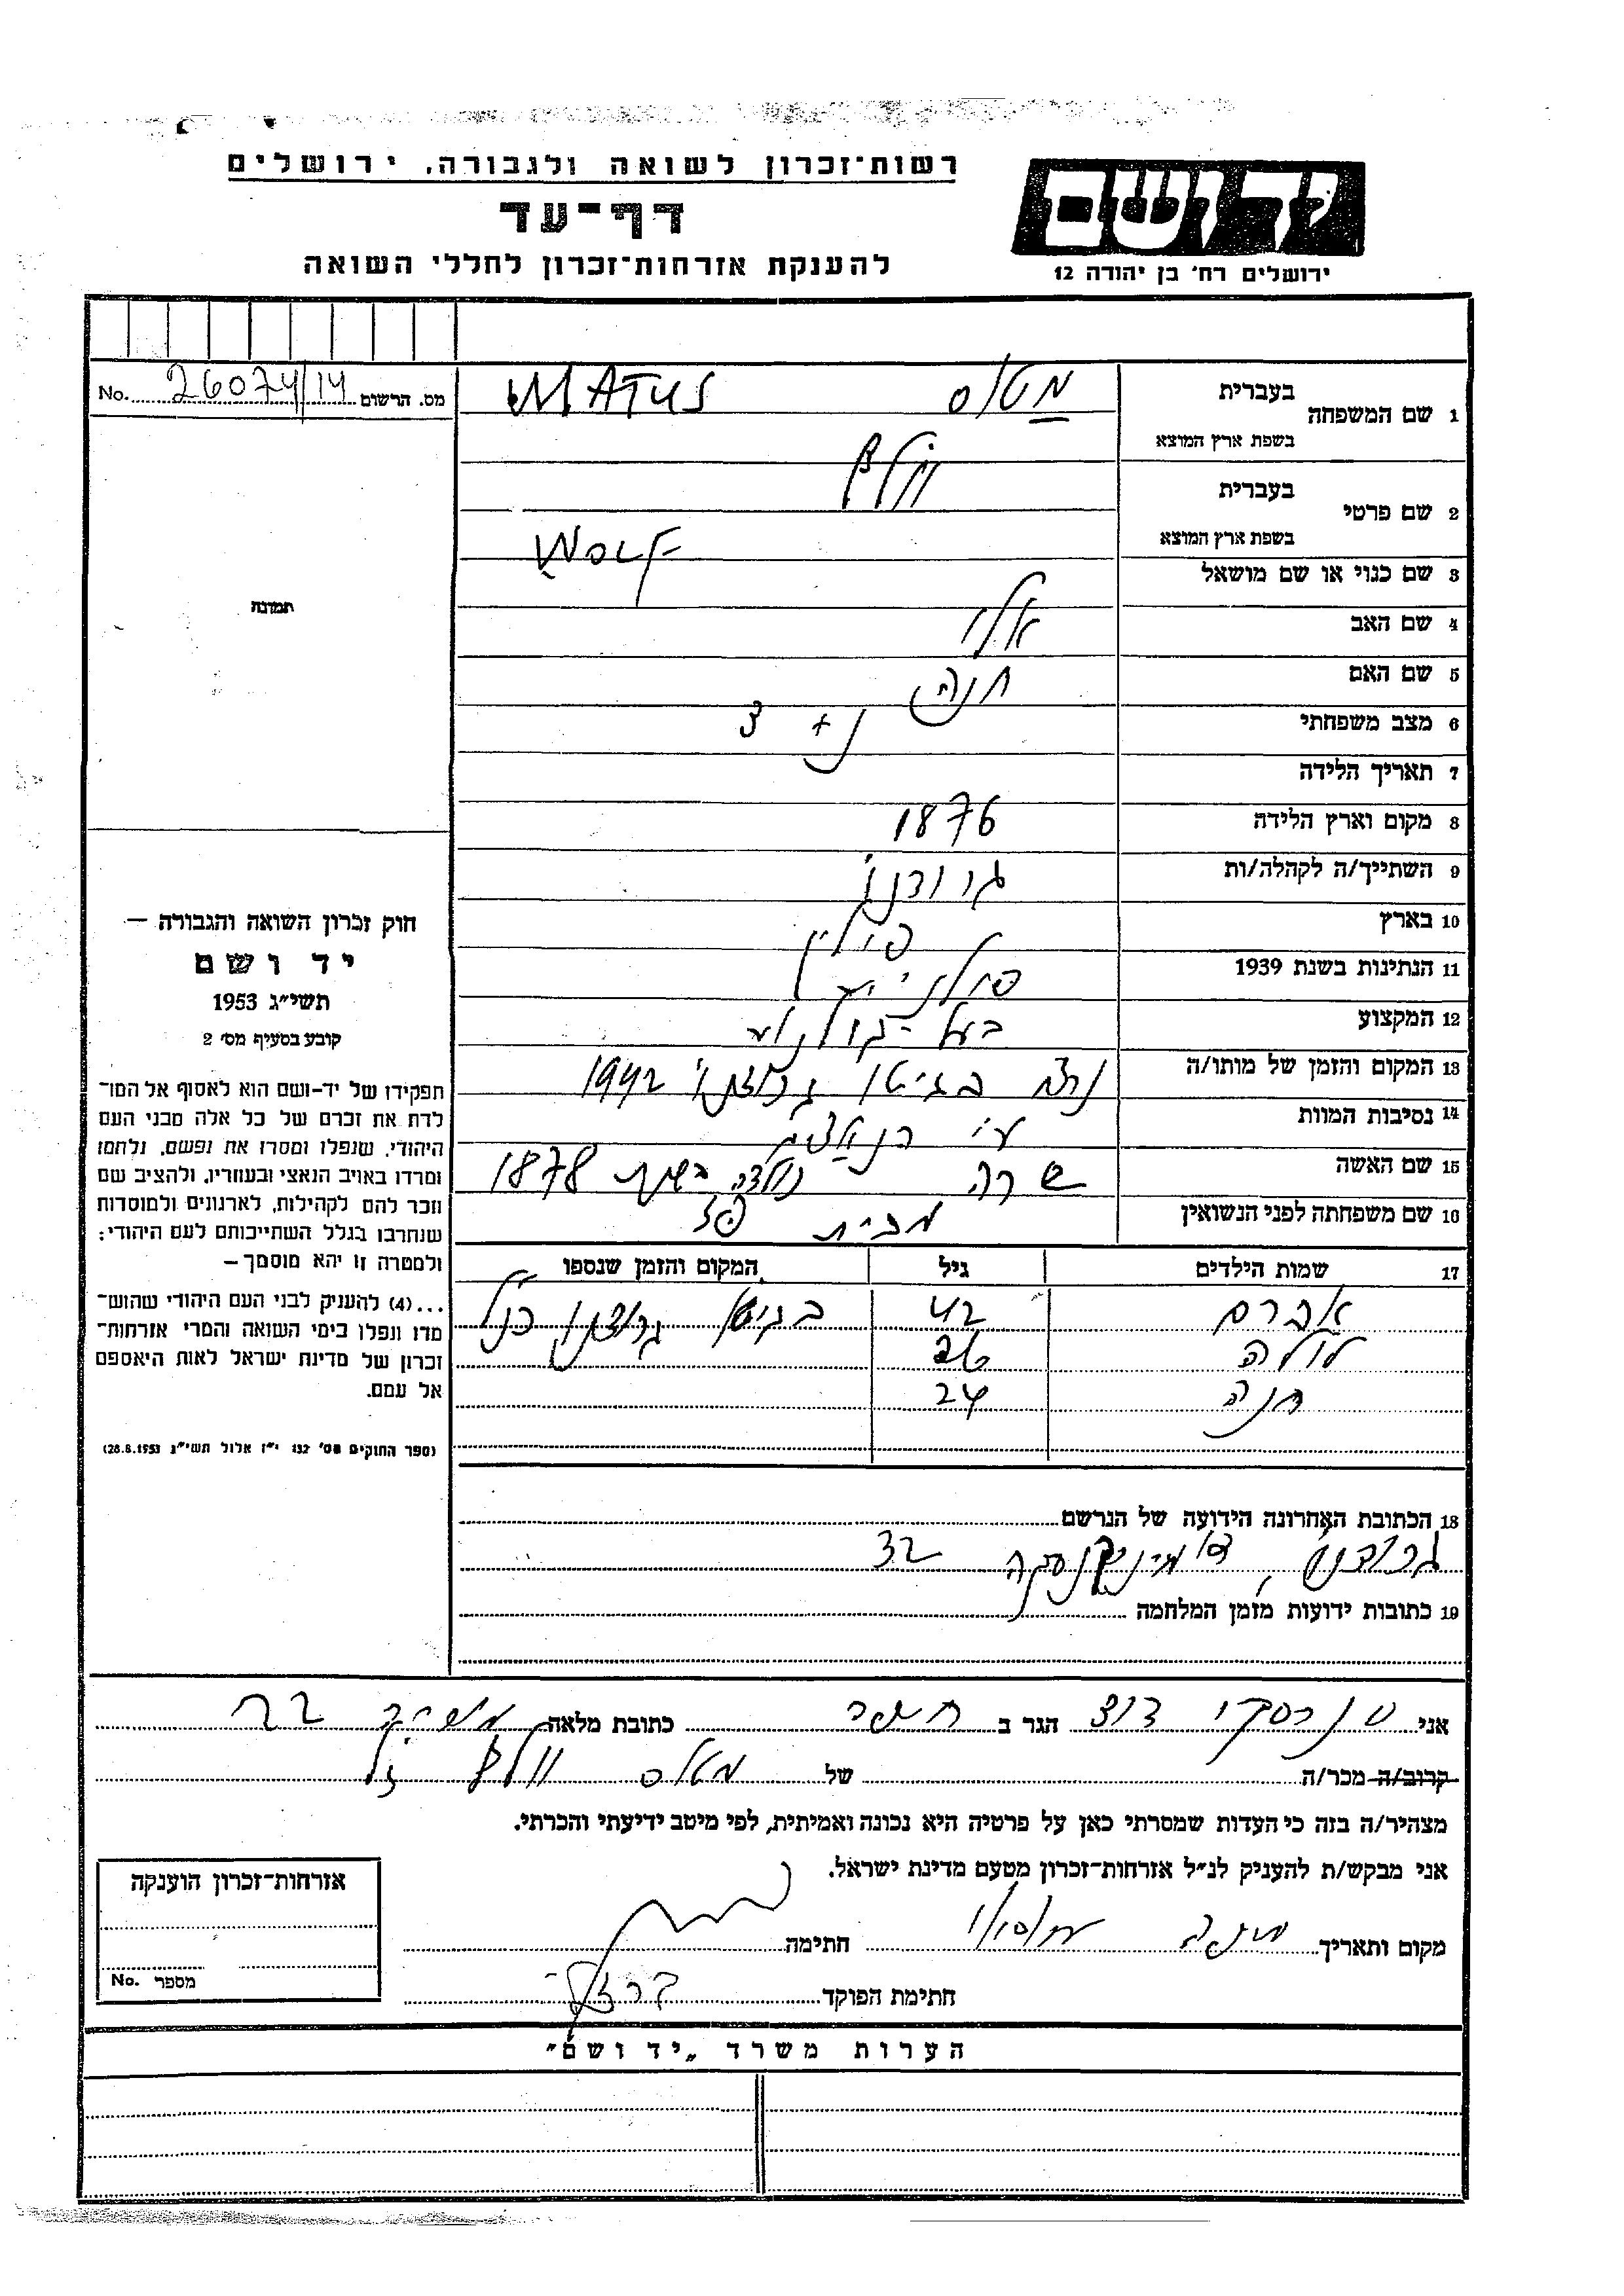 רשות־זכרון לשואה ולגבורה, ירושלים
דף־עד
להענקת אזרחות־זכרון לחללי השואה
ידושם
ירושלים רח' בן יהודה 12
מס. הרשום 26074/14 No.
1 שם המשפחה בעברית מטוס MATUS
בשפת ארץ המוצא
2 שם פרטי בעברית וולף
בשפת ארץ המוצא WOLF
3 שם כנוי או שם מושאל
4 שם האב אלי
5 שם האם חנה
6 מצב משפחתי נ + 3
7 תאריך הלידה
8 מקום וארץ הלידה 1876
9 השתייך/ה לקהלה/ות גרודנו
10 בארץ פולין
11 הנתינות בשנת 1939
12 המקצוע בעל
13 המקום והזמן של מותו/ה בגיטו גרודנו 1942
14 נסיבות המוות ע"י
15 שם האשה שרה נולדה בשנת 1878
16 שם משפחתה לפני הנשואין מבית
17 שמות הילדים גיל המקום והזמן שנספו
אברם 42 בגיטו גרודנו כנ"ל
לולה 26
חנה 24
18 הכתובת האחרונה הידועה של הנרשם
גרודנו 32
19 כתובות ידועות מזמן המלחמה
תמונה
חוק זכרון השואה והגבורה —
יד ושם
תשי״ג 1953
קובע בסעיף מס׳ 2
תפקידו של יד-ושם הוא לאסוף אל המו־
לדת את זכרם של כל אלה מבני העם
היהודי, שנפלו ומסרו את נפשם, נלחמו
ומרדו באויב הנאצי ובעוזריו, ולהציב שם
וזכר להם לקהילות, לארגונים ולמוסדות
שנחרבו בגלל השתייכותם לעם היהודי;
ולמטרה זו יהא מוסמך —
...(4) להעניק לבני העם היהודי שהוש־
מדו ונפלו בימי השואה והמרי אזרחות־
זכרון של מדינת ישראל לאות היאספם
אל עמם.
(ספר החוקים מס' 132 י״ז אלול תשי״ג 28.8.1953)
אני דוד הגר ב חיפה כתובת מלאה 22
קרוב/ה מכר/ה של מטוס וולף ז"ל
מצהיר/ה בזה כי העדות שמסרתי כאן על פרטיה היא נכונה ואמיתית, לפי מיטב ידיעתי והכרתי.
אני מבקש/ת להעניק לנ״ל אזרחות־זכרון מטעם מדינת ישראל.
מקום ותאריך חיפה חתימה
חתימת הפוקד
אזרחות־זכרון הוענקה
מספר No.
הערות משרד „יד ושם״